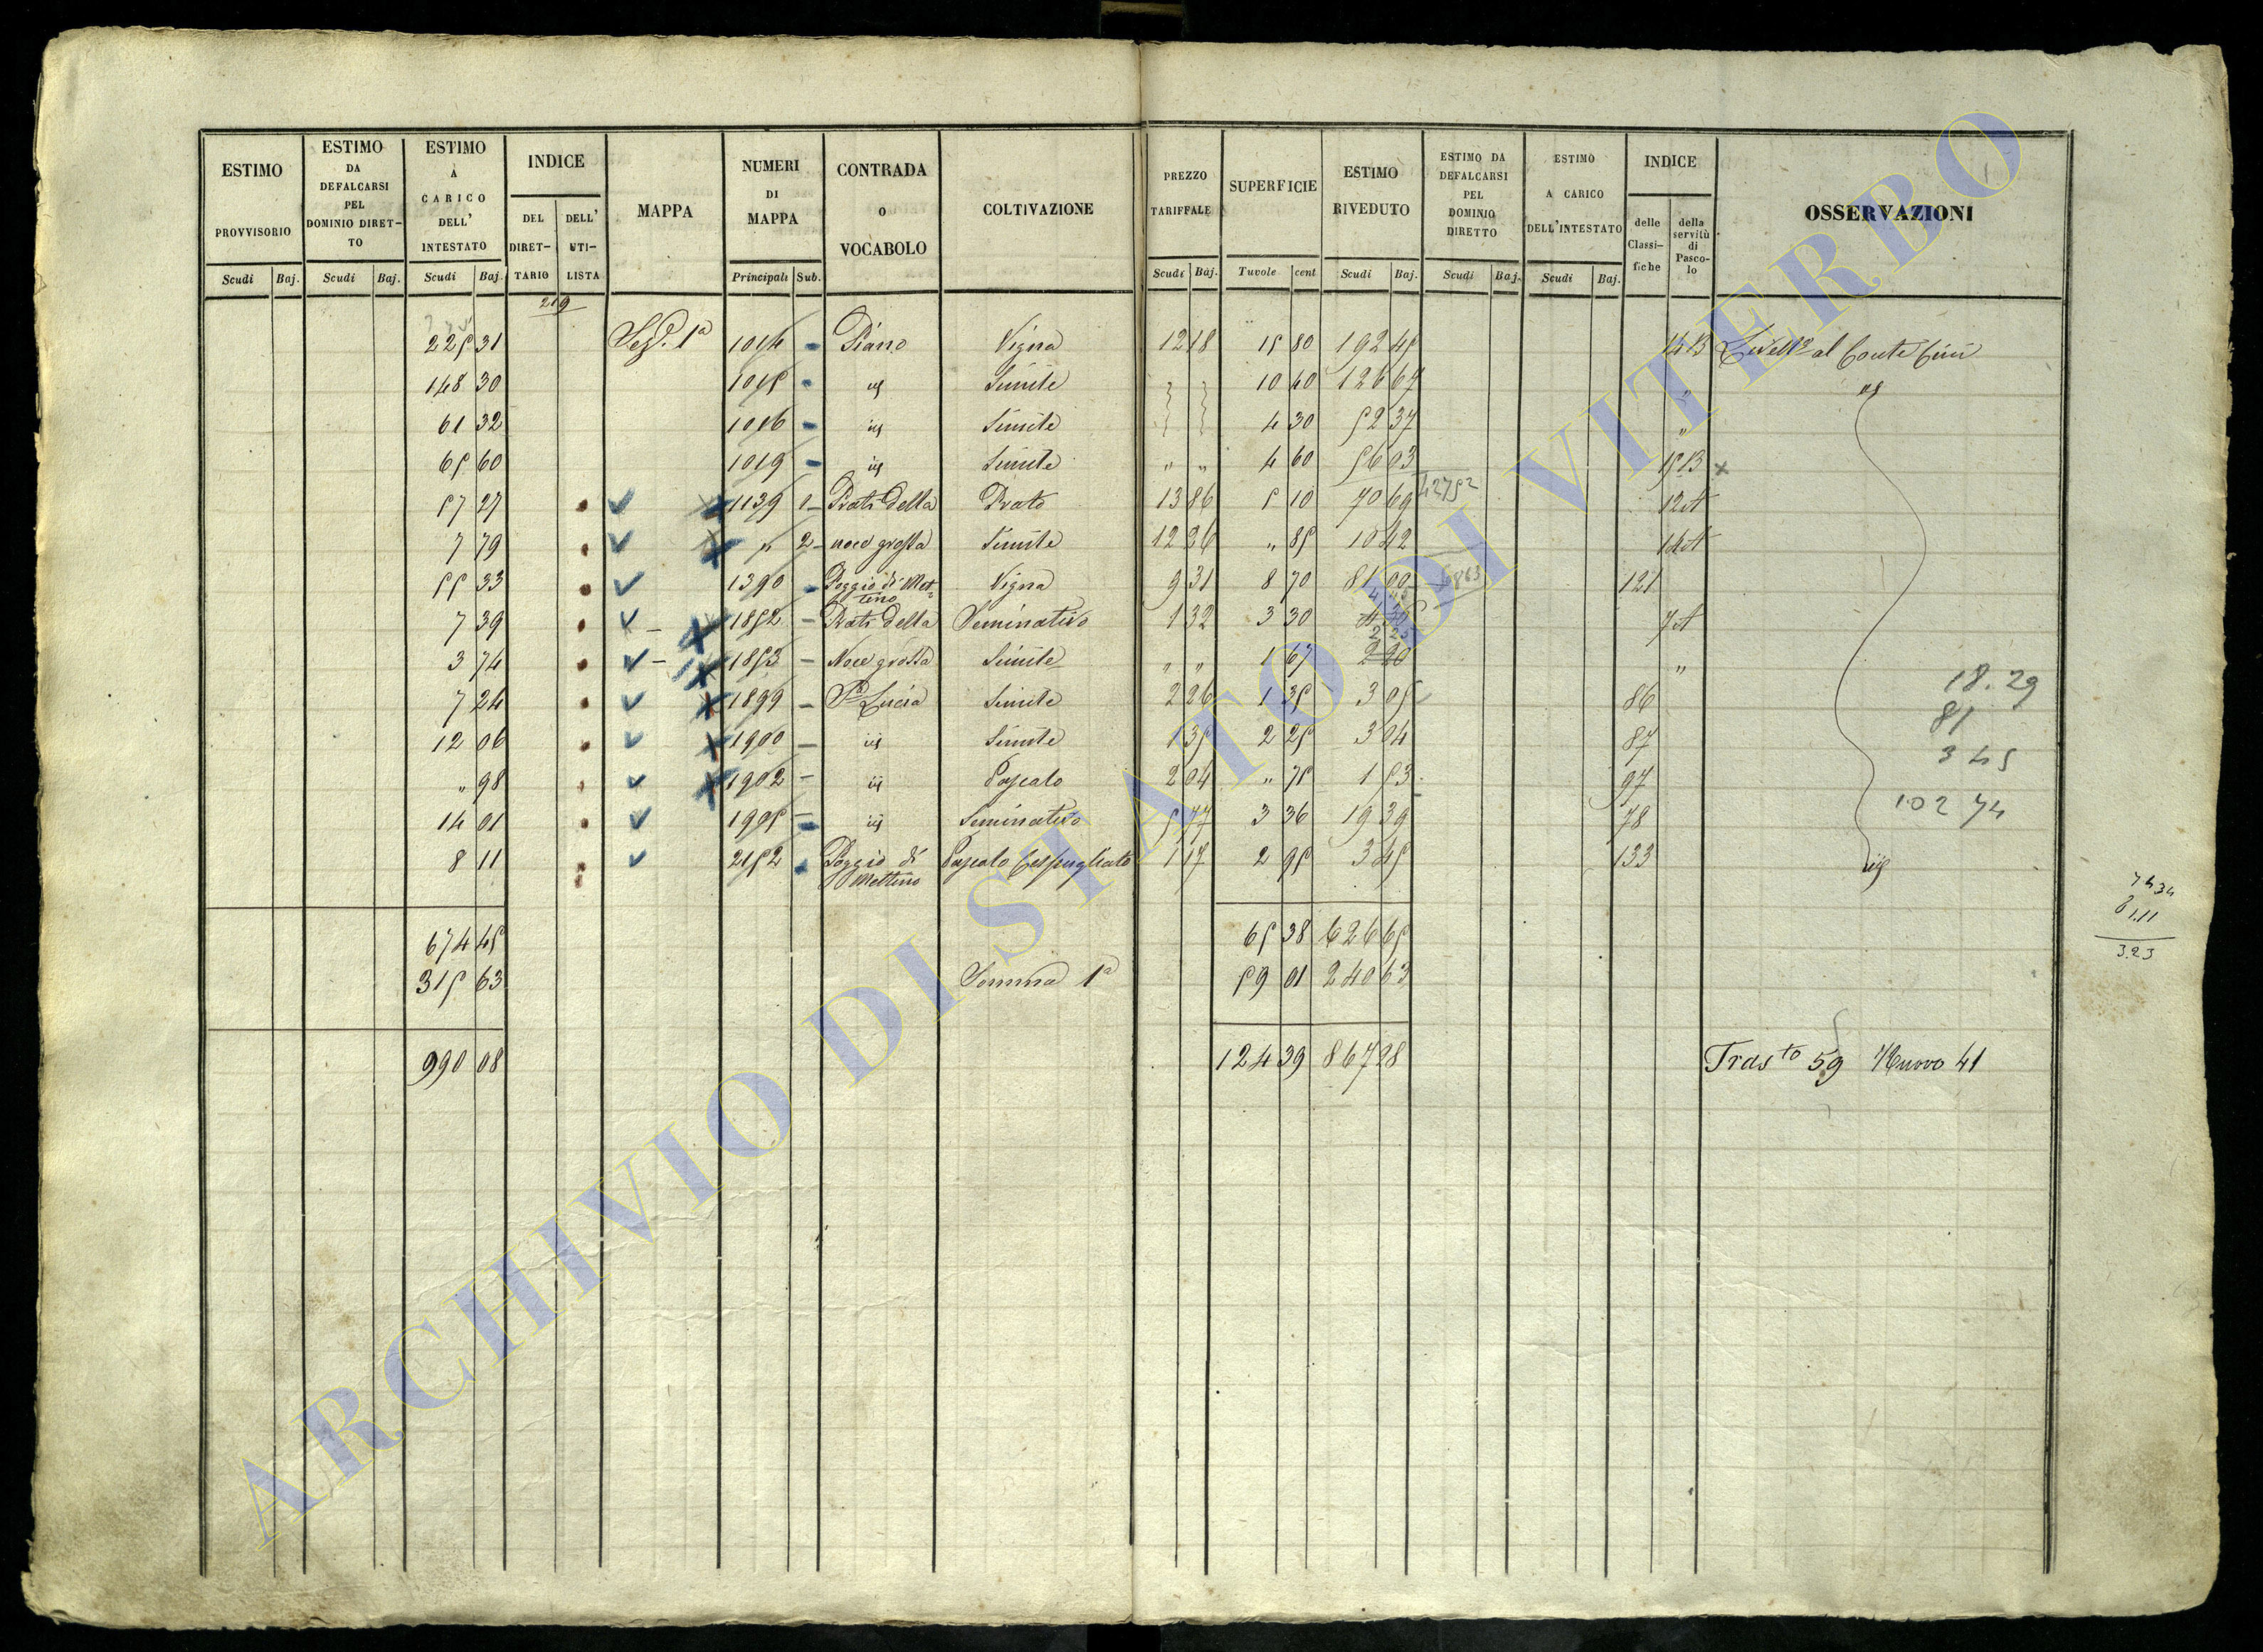 ESTIMO PROVVISORIO Scudi Baj.
ESTIMO DA DEFALCARSI PEL DOMINIO DIRET-TO Scudi Baj.
ESTIMO A CARICO DELL' INTESTATO Scudi Baj.
INDICE DEL DIRET-TARIO DELL' UTI-LISTA
MAPPA
NUMERI DI MAPPA Principali Sub.
CONTRADA O VOCABOLO
COLTIVAZIONE
PREZZO TARIFFALE Scudi Baj.
SUPERFICIE Tavole cent
ESTIMO RIVEDUTO Scudi Baj.
ESTIMO DA DEFALCARSI PEL DOMINIO DIRETTO Scudi Baj.
ESTIMO A CARICO DELL'INTESTATO Scudi Baj.
INDICE delle Classi-fiche della servitù di Pasco-lo
OSSERVAZIONI
219
225 31 Sez. 1a 1014 Piano Vigna 12 18 15 80 192 45 14 B al Conte
148 30 1015 id Simile 10 40 126 67 "
61 32 1016 id Simile 4 30 52 37 "
65 60 1019 id Simile " " 4 60 56 03 15 B x
57 27 1139 1 Prati della Prato 13 86 5 10 70 69 42752 12 A
7 79 " 2 noce grossa Simile 12 26 " 85 10 42 14 A
55 33 1390 Poggio di Met-tino Vigna 9 31 8 70 81 00 121
7 39 1852 Prati della Seminativo 1 32 3 30 7 A
3 74 1853 Noce grossa Simile " " 1 67 2 20 "
7 24 1899 Sa Lucia Simile 2 26 1 35 3 05 86
12 06 1900 id Simile 1 35 2 25 3 04 87
" 98 1902 id Pascolo 2 04 " 75 1 53 97
14 01 1905 id Seminativo 5 77 3 36 19 39 78
8 11 2152 Poggio di Mettino Pascolo Cespugliato 1 17 2 95 3 45 133 id
18.29
81
3 45
102 74
674 45 65 38 626 65
315 63 Somma 1a 59 01 240 63
990 08 124 39 867 28 Trasto 59 Nuovo 41
7434
3.23
ARCHIVIO DI STATO DI VITERBO